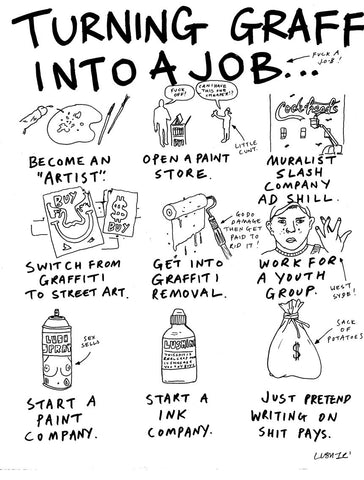 TURNING GRAFF
INTO A JOB...
FUCK A
JOB!
FUCK
OFF!
CAN I HAVE
THIS FOR
CHEAPER!?
LITTLE
CUNT.
BECOME AN
"ARTIST".
OPEN A PAINT
STORE.
MURALIST
SLASH
COMPANY
AD SHILL.
BUY
BUY
GO DO
DAMAGE
THEN GET
PAID TO
RID IT!
SWITCH FROM
GRAFFITI
TO STREET ART.
GET INTO
GRAFFITI
REMOVAL.
WORK FOR
A YOUTH
GROUP.
WEST
SYDE!
SPRAY
SEX
SELLS
$
SACK
OF
POTATOES
START A
PAINT
COMPANY.
START A
INK
COMPANY.
JUST PRETEND
WRITING ON
SHIT PAYS.